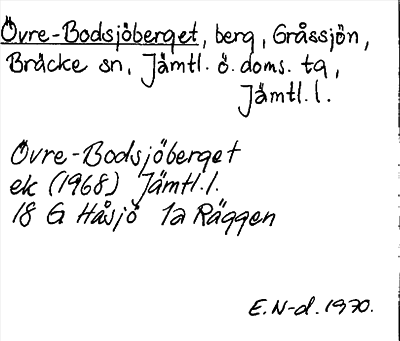 Övre-Bodsjöberget, berg, Gråssjön,
Bräcke sn, Jämtl. ö. doms. tg,
Jämtl. l.
Övre-Bodsjöberget
ek (1968) Jämtl. l.
18 G Håsjö 1a Räggen
E. N-d. 1970.